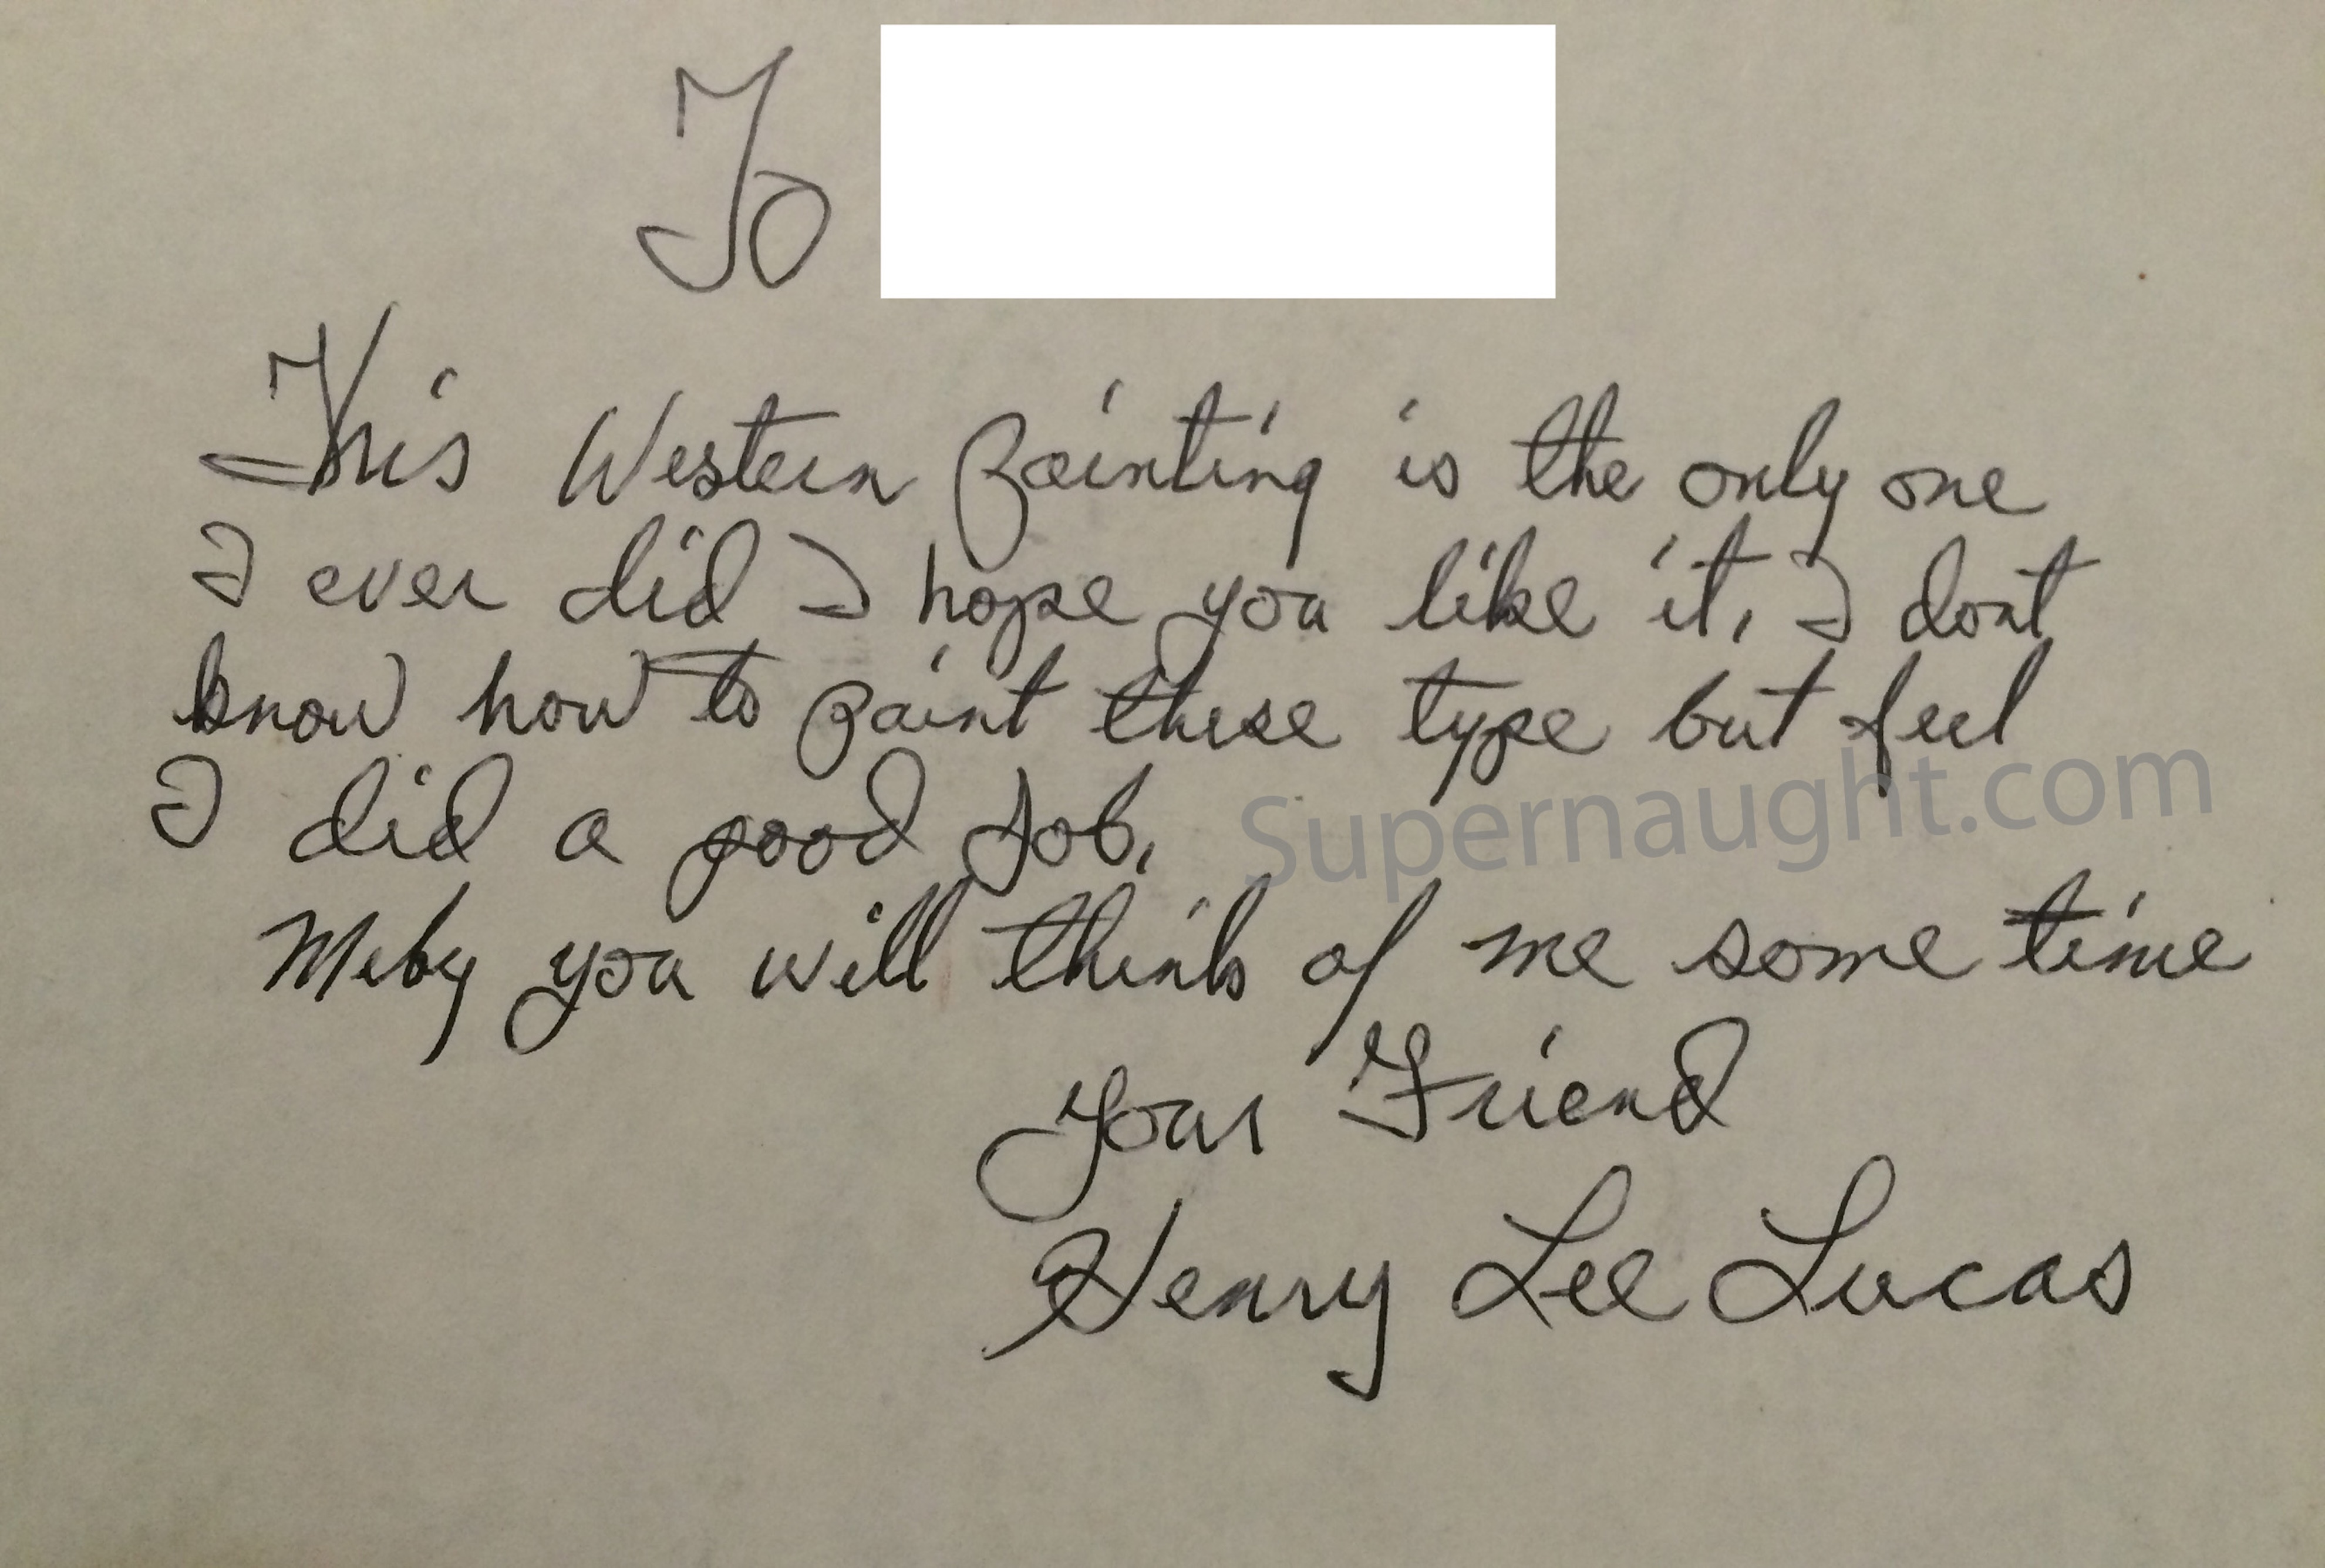 To
This Western Painting is the only one
I ever did I hope you like it, I dont
know how to paint these type but feel
I did a good Job,
Supernaught.com
Meby you will think of me some time
your Friend
Henry Lee Lucas